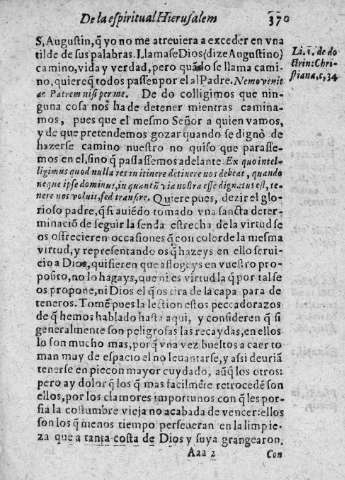 De la espiritual Hierusalem 370
S, Augustin, q̃ yo no me atreuiera a exceder en vna
tilde de sus palabras. Llamase Dios (dize Augustino)
camino, vida y verdad, pero quãdo se llama cami-
no, quiere q̃ todos passen por el al Padre. Nemo venit
ac Patrem nisi per me. De do colligimos que nin-
guna cosa nos ha de detener mientras camina-
mos, pues que el mesmo Señor a quien vamos,
y de que pretendemos gozar quando se dignò de
hazerse camino nuestro no quiso que parasse-
mos en el, sino q̃ passassemos adelante. Ex quo intel-
ligimus quod nulla res in itinere detinere nos debeat, quando
neque ipse dominus, in quantũ via nostra esse dignatus est, te-
nere nos voluit, sed transire. Quiere pues, dezir el glo-
rioso padre, q̃ si auiẽdo tomado vna sancta deter-
minaciõ de seguir la senda estrecha de la virtud se
os ofrecieren occasiones q̃ con color de la mesma
virtud, y representando os q̃ hazeys en ello serui-
cio a Dios, quisieren que aflogeys en vuestro pro-
posito, no lo hagays, que ni es virtud la q̃ por tal se
os propone, ni Dios el q̃ os tira de la capa para de-
teneros. Tomẽ pues la lection estos peccadorazos
de q̃ hemos hablado hasta aqui, y consideren q̃ si
generalmente son peligrosas las recaydas, en ellos
lo son mucho mas, porq̃ vna vez bueltos a caer to
man muy de espacio el no leuantarse, y assi deuriã
tenerse en pie con mayor cuydado, aũq̃ los otros:
pero ay dolor q̃ los q̃ mas facilmẽte retrocedẽ son
ellos, por los clamores importunos con q̃ les por-
sia la costumbre vieja no acabada de vencer: ellos
son los q̃ menos tiempo perseueran en la limpie-
za que a tanta costa de Dios y suya grangearon.
Aaa 2 Con
Li. 1. de do
ctrin: Chri-
stiana, c, 34